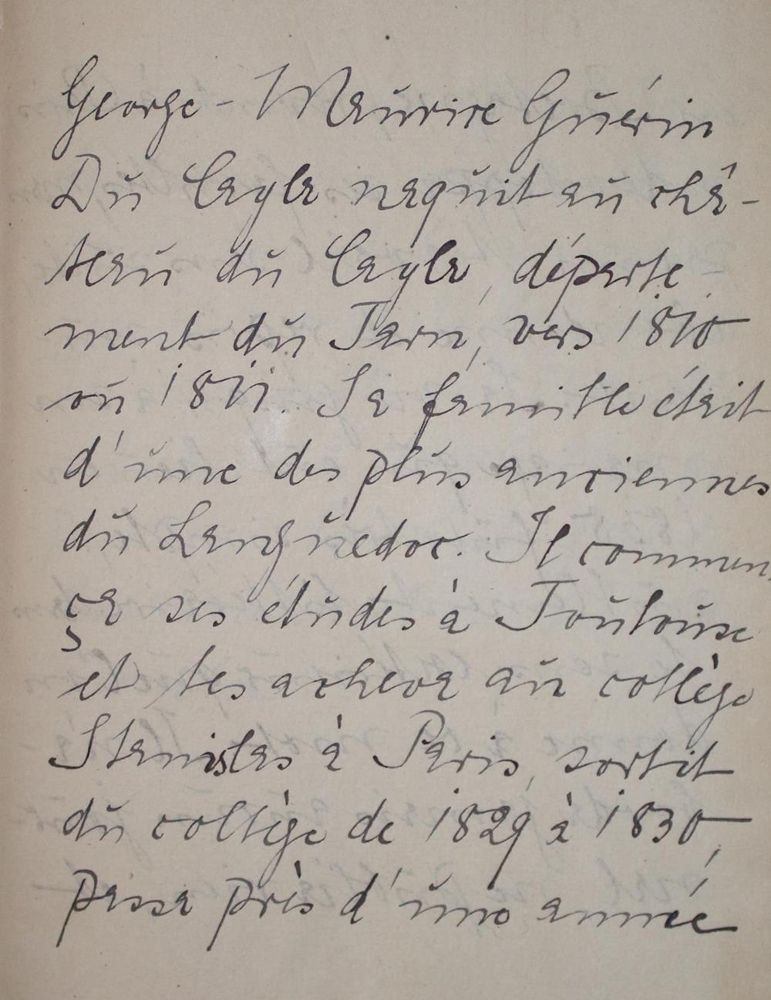 George-Maurice Guérin
Du Cayla naquit au châ-
teau du Cayla, départe-
ment du Tarn, vers 1810
ou 1811. Sa famille était
d'une des plus anciennes
du Languedoc. Il commen
ça ses études à Toulouse
et les acheva au collège
Stanislas à Paris, sortit
du collège de 1829 à 1830,
passa près d'une année